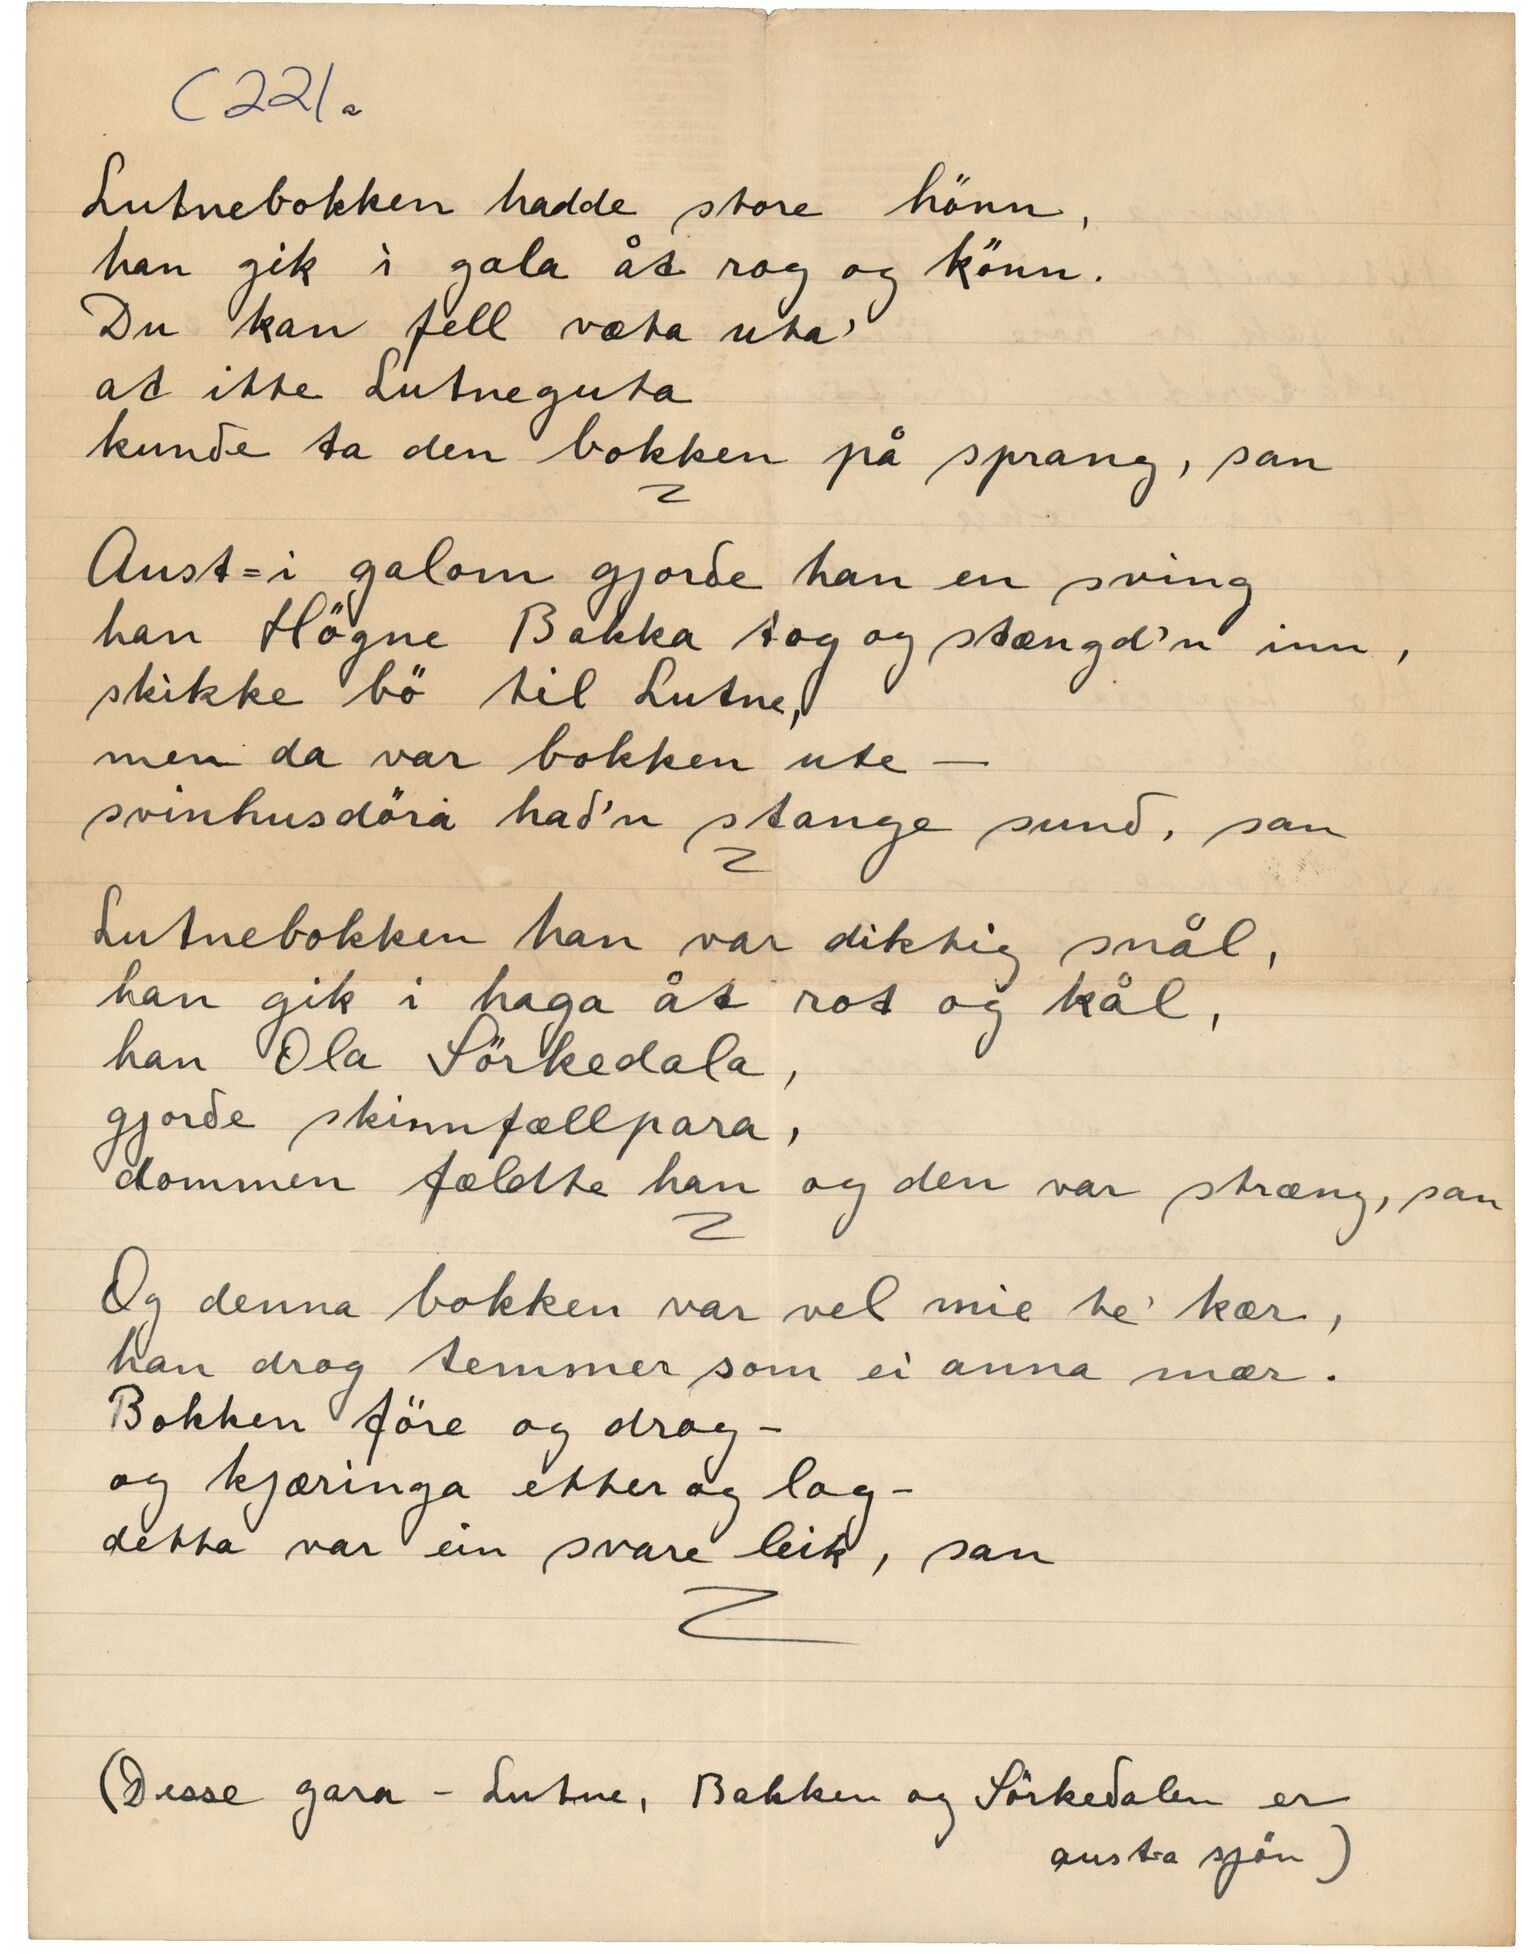 C 221 a
Lutnebokken hadde store hönn,
han gik i gala åt rog og könn.
Du kan fell væta uta'
at itte Lutneguta
kunde ta den bokken på sprang, san
Aust=i galom gjorde han en sving
han Högne Bakka tog og stængd'n inn,
skikke bö til Lutne,
men da var bokken ute —
svinhusdöra had'n stange sund, san
Lutnebokken han var diktig snål,
han gik i haga åt rot og kål,
han Ola Sörkedala,
gjorde skinnfællpara,
dommen fældte han og den var stræng, san
Og denna bokken var vel mie te' kær,
han drog temmer som ei anna mær.
Bokken före og drog –
og kjæringa etter og log –
detta var ein svare leik, san
(Desse gara – Lutne, Bakken og Sörkedalen er
austa sjön)